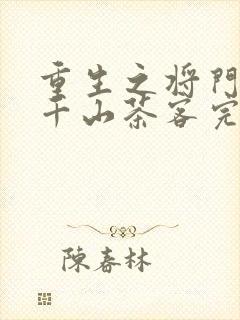 重生之将門
千山茶客完
陳春林